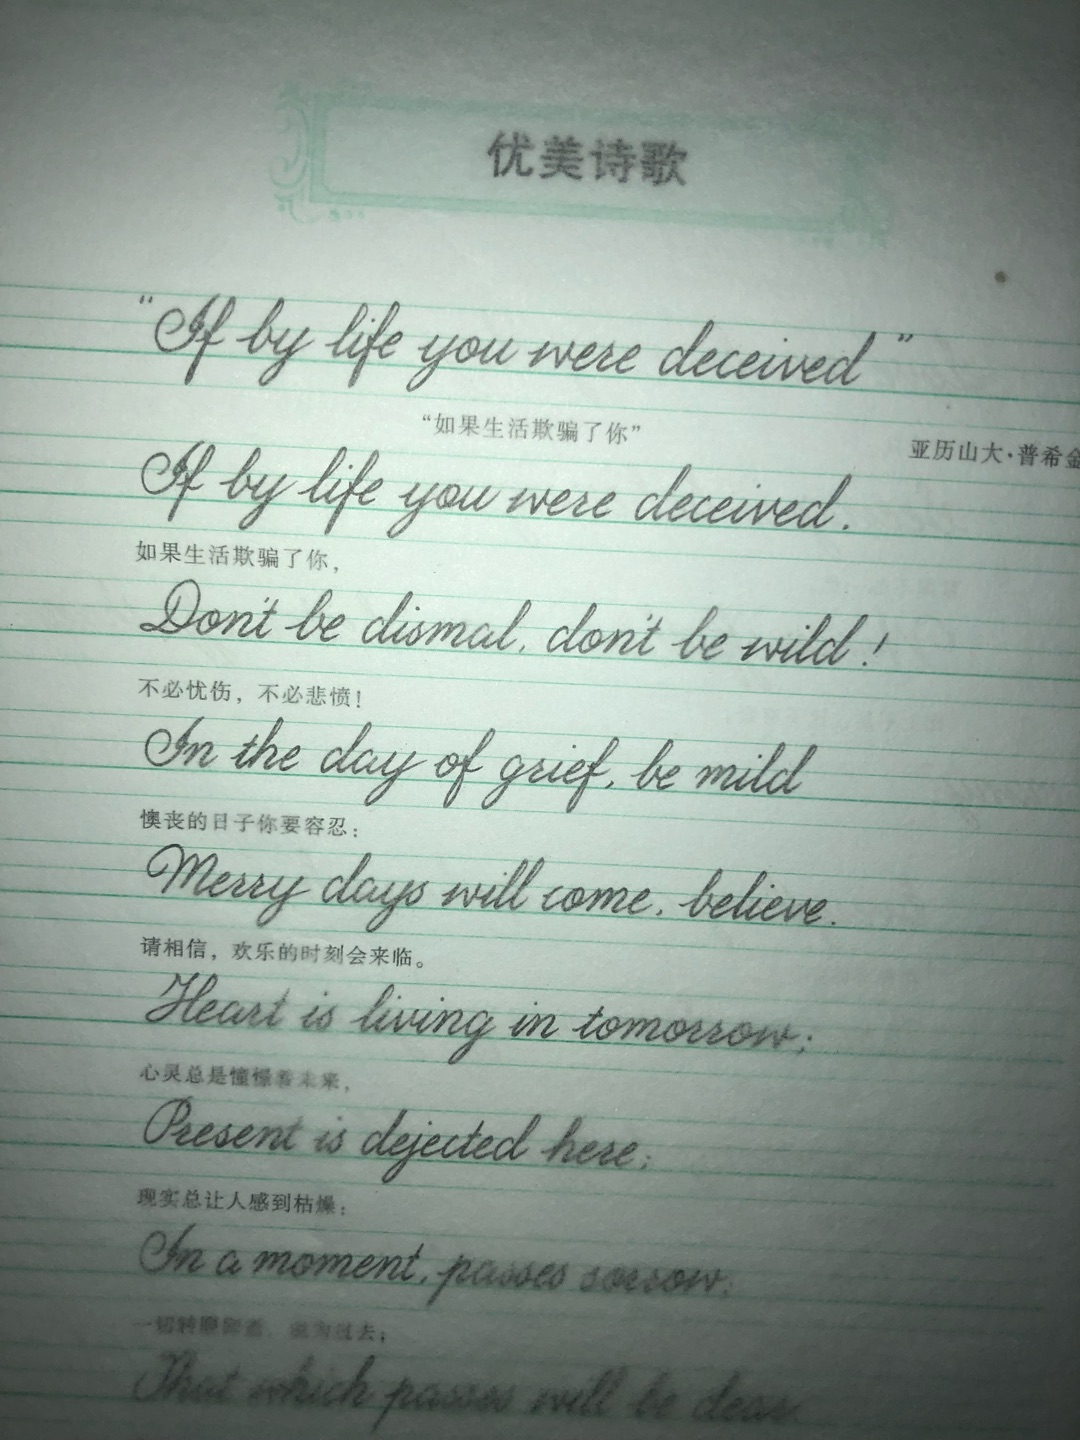 优美诗歌
“If by life you were deceived”
“如果生活欺骗了你”
亚历山大·普希金
If by life you were deceived.
如果生活欺骗了你，
Don't be dismal, don't be wild!
不必忧伤，不必悲愤！
In the day of grief, be mild
懊丧的日子你要容忍：
Merry days will come, believe.
请相信，欢乐的时刻会来临。
Heart is living in tomorrow;
心灵总是憧憬着未来，
Present is dejected here;
现实总让人感到枯燥：
In a moment, passes sorrow;
一切转眼即逝，成为过去；
That which passes will be dear